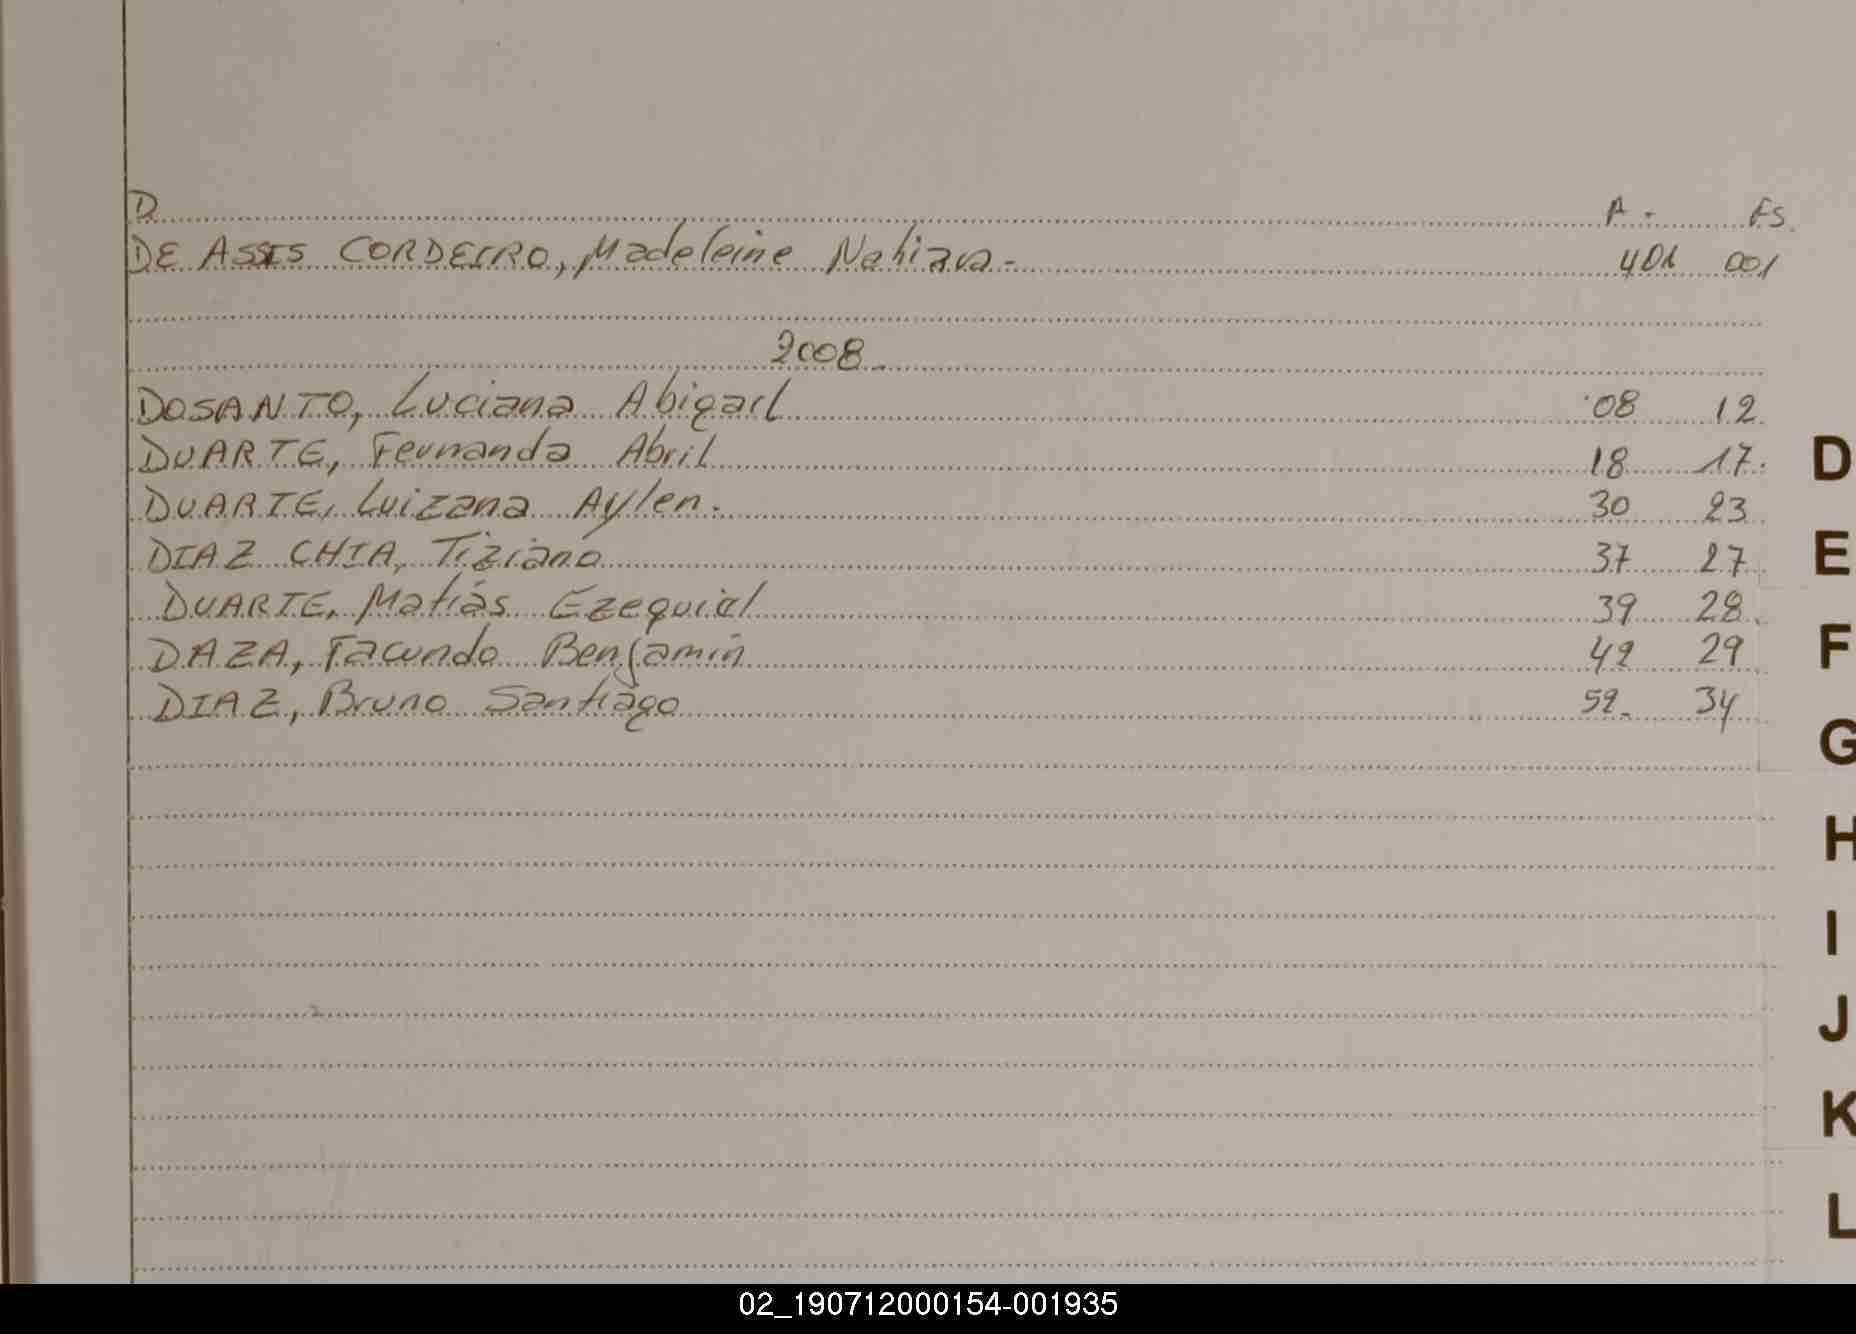 D A. Fs.
DE ASSIS CORDEIRO, Madeleine Nahiara.- 401 001
2008.
DOSANTO, Luciana Abigail 08 12
DUARTE, Fernanda Abril 18 17.
DUARTE, Luizana Aylen. 30 23
DIAZ CHIA, Tiziano 37 27
DUARTE, Matías Ezequiel 39 28
DAZA, Facundo Benjamin 42 29
DIAZ, Bruno Santiago 52. 34
D
E
F
G
H
I
J
K
L
02_190712000154-001935